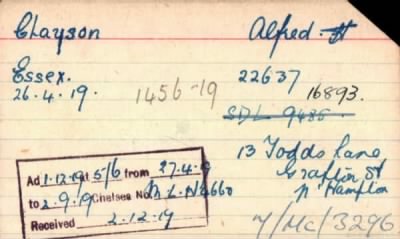 Clayson Alfred H
Essex. 22637
26.4.19. 1456-19 16893.
SDL 9486
13 Todds Lane
Grafton St
N'Hampton
Ad 1.12.19 at 5/6 from 27.4.19
to 2.9.19 Chelsea No. N.L.N 4660
Received 2.12.19
7/Mc/3296